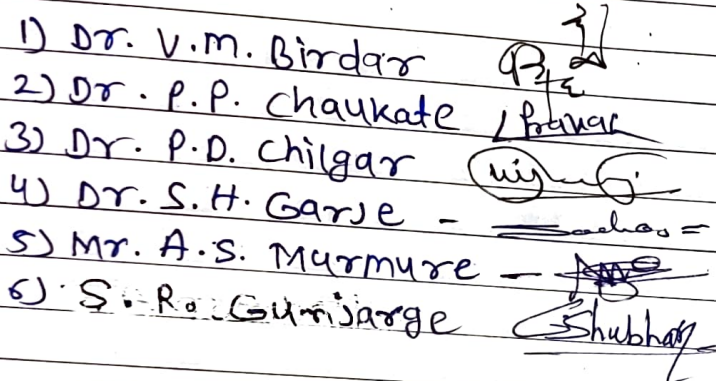 1) Dr. V.M. Birdar
2) Dr. P.P. Chaukate Pranav
3) Dr. P.D. Chilgar
4) Dr. S.H. Garje -
5) Mr. A.S. Murmure -
6) S. R. Gunjarge Shubham